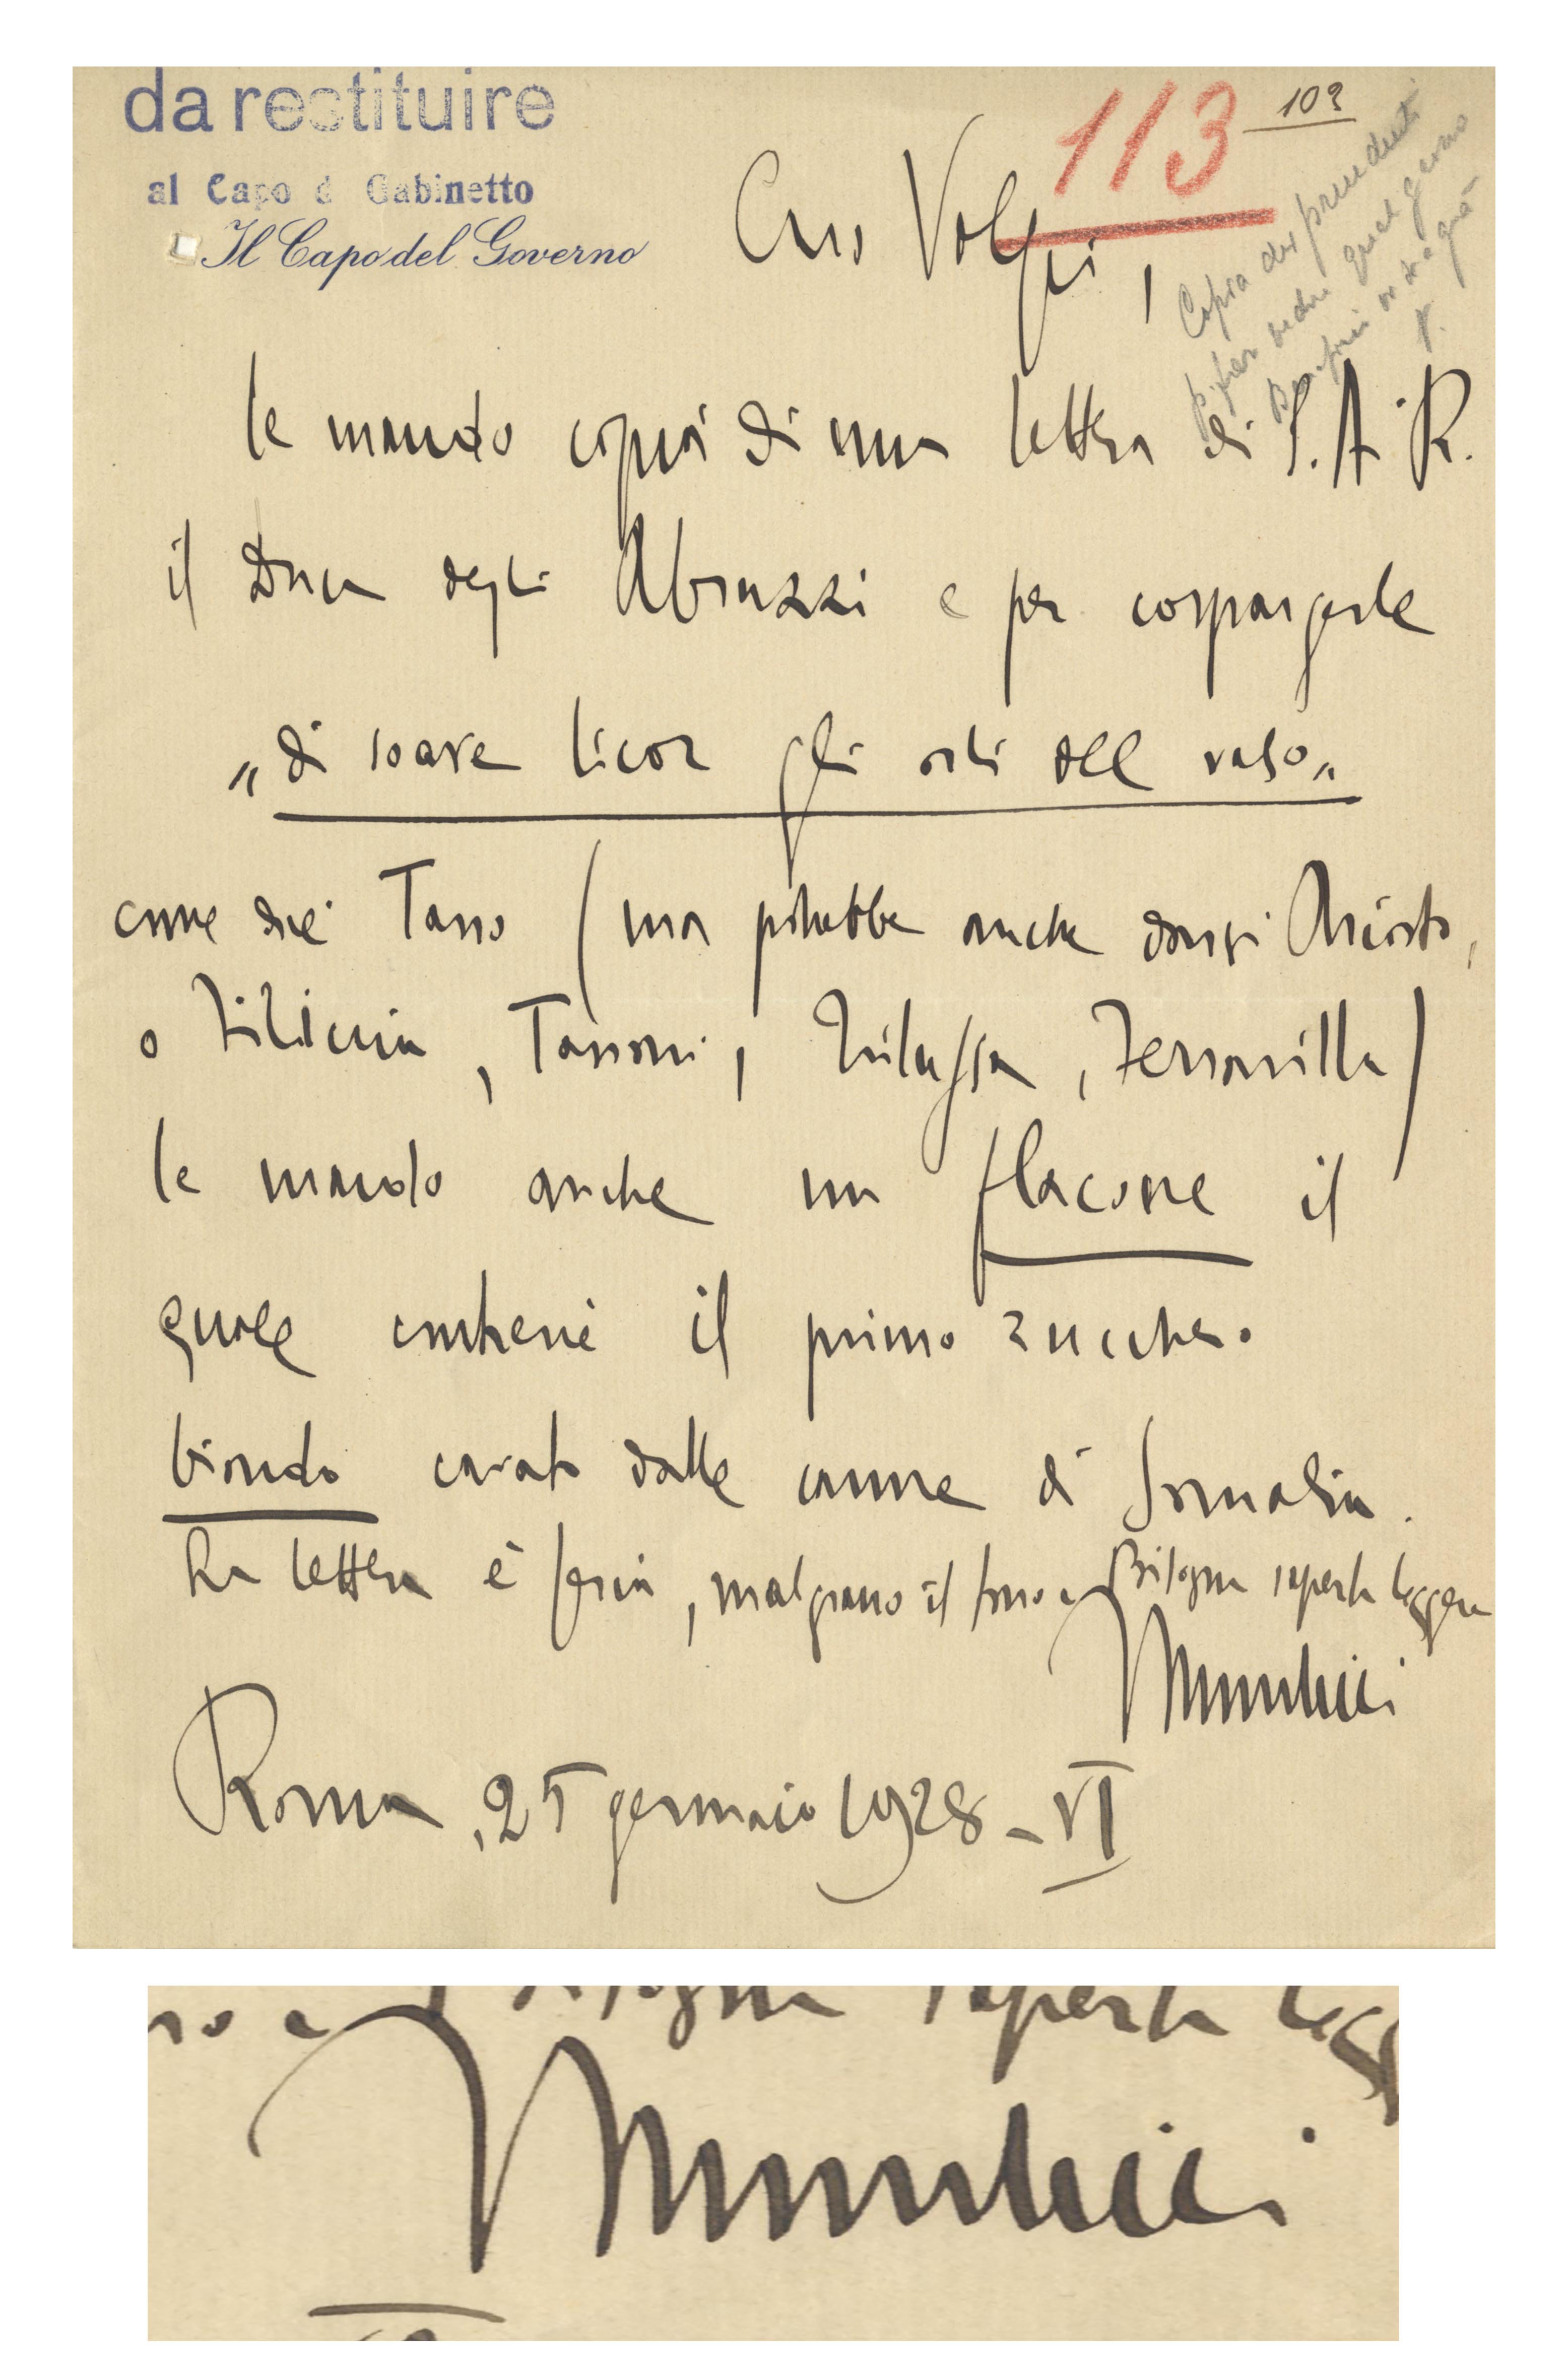 da restituire
al Capo di Gabinetto
Il Capo del Governo
113
Caro Volpi,
le mando copia di una lettera di S.A.R.
il Duca degli Abruzzi e per cospargerle
„di soave licor gli orli del vaso„
come dice Tasso (ma potrebbe anche darsi Ariosto,
o Filicaia, Tassoni, Trilussa, Ferravilla)
le mando anche un flacone il
quale contiene il primo zucchero
biondo cavato dalle canne di Somalia.
La lettera è seria, malgrado il tono e bisogna saperla leggere
Mussolini
Roma, 25 gennaio 1928 - VI
bisogna saperla legg
Mussolini